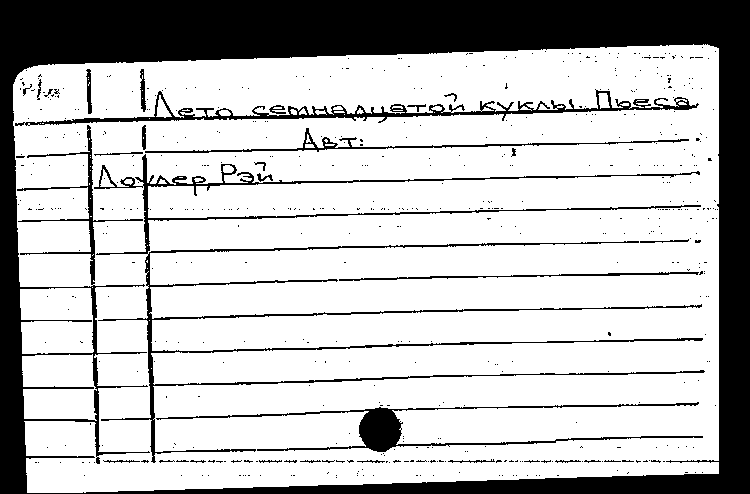 Лето семнадцатой куклы. Пьеса
Авт:
Лоулер, Рэй.